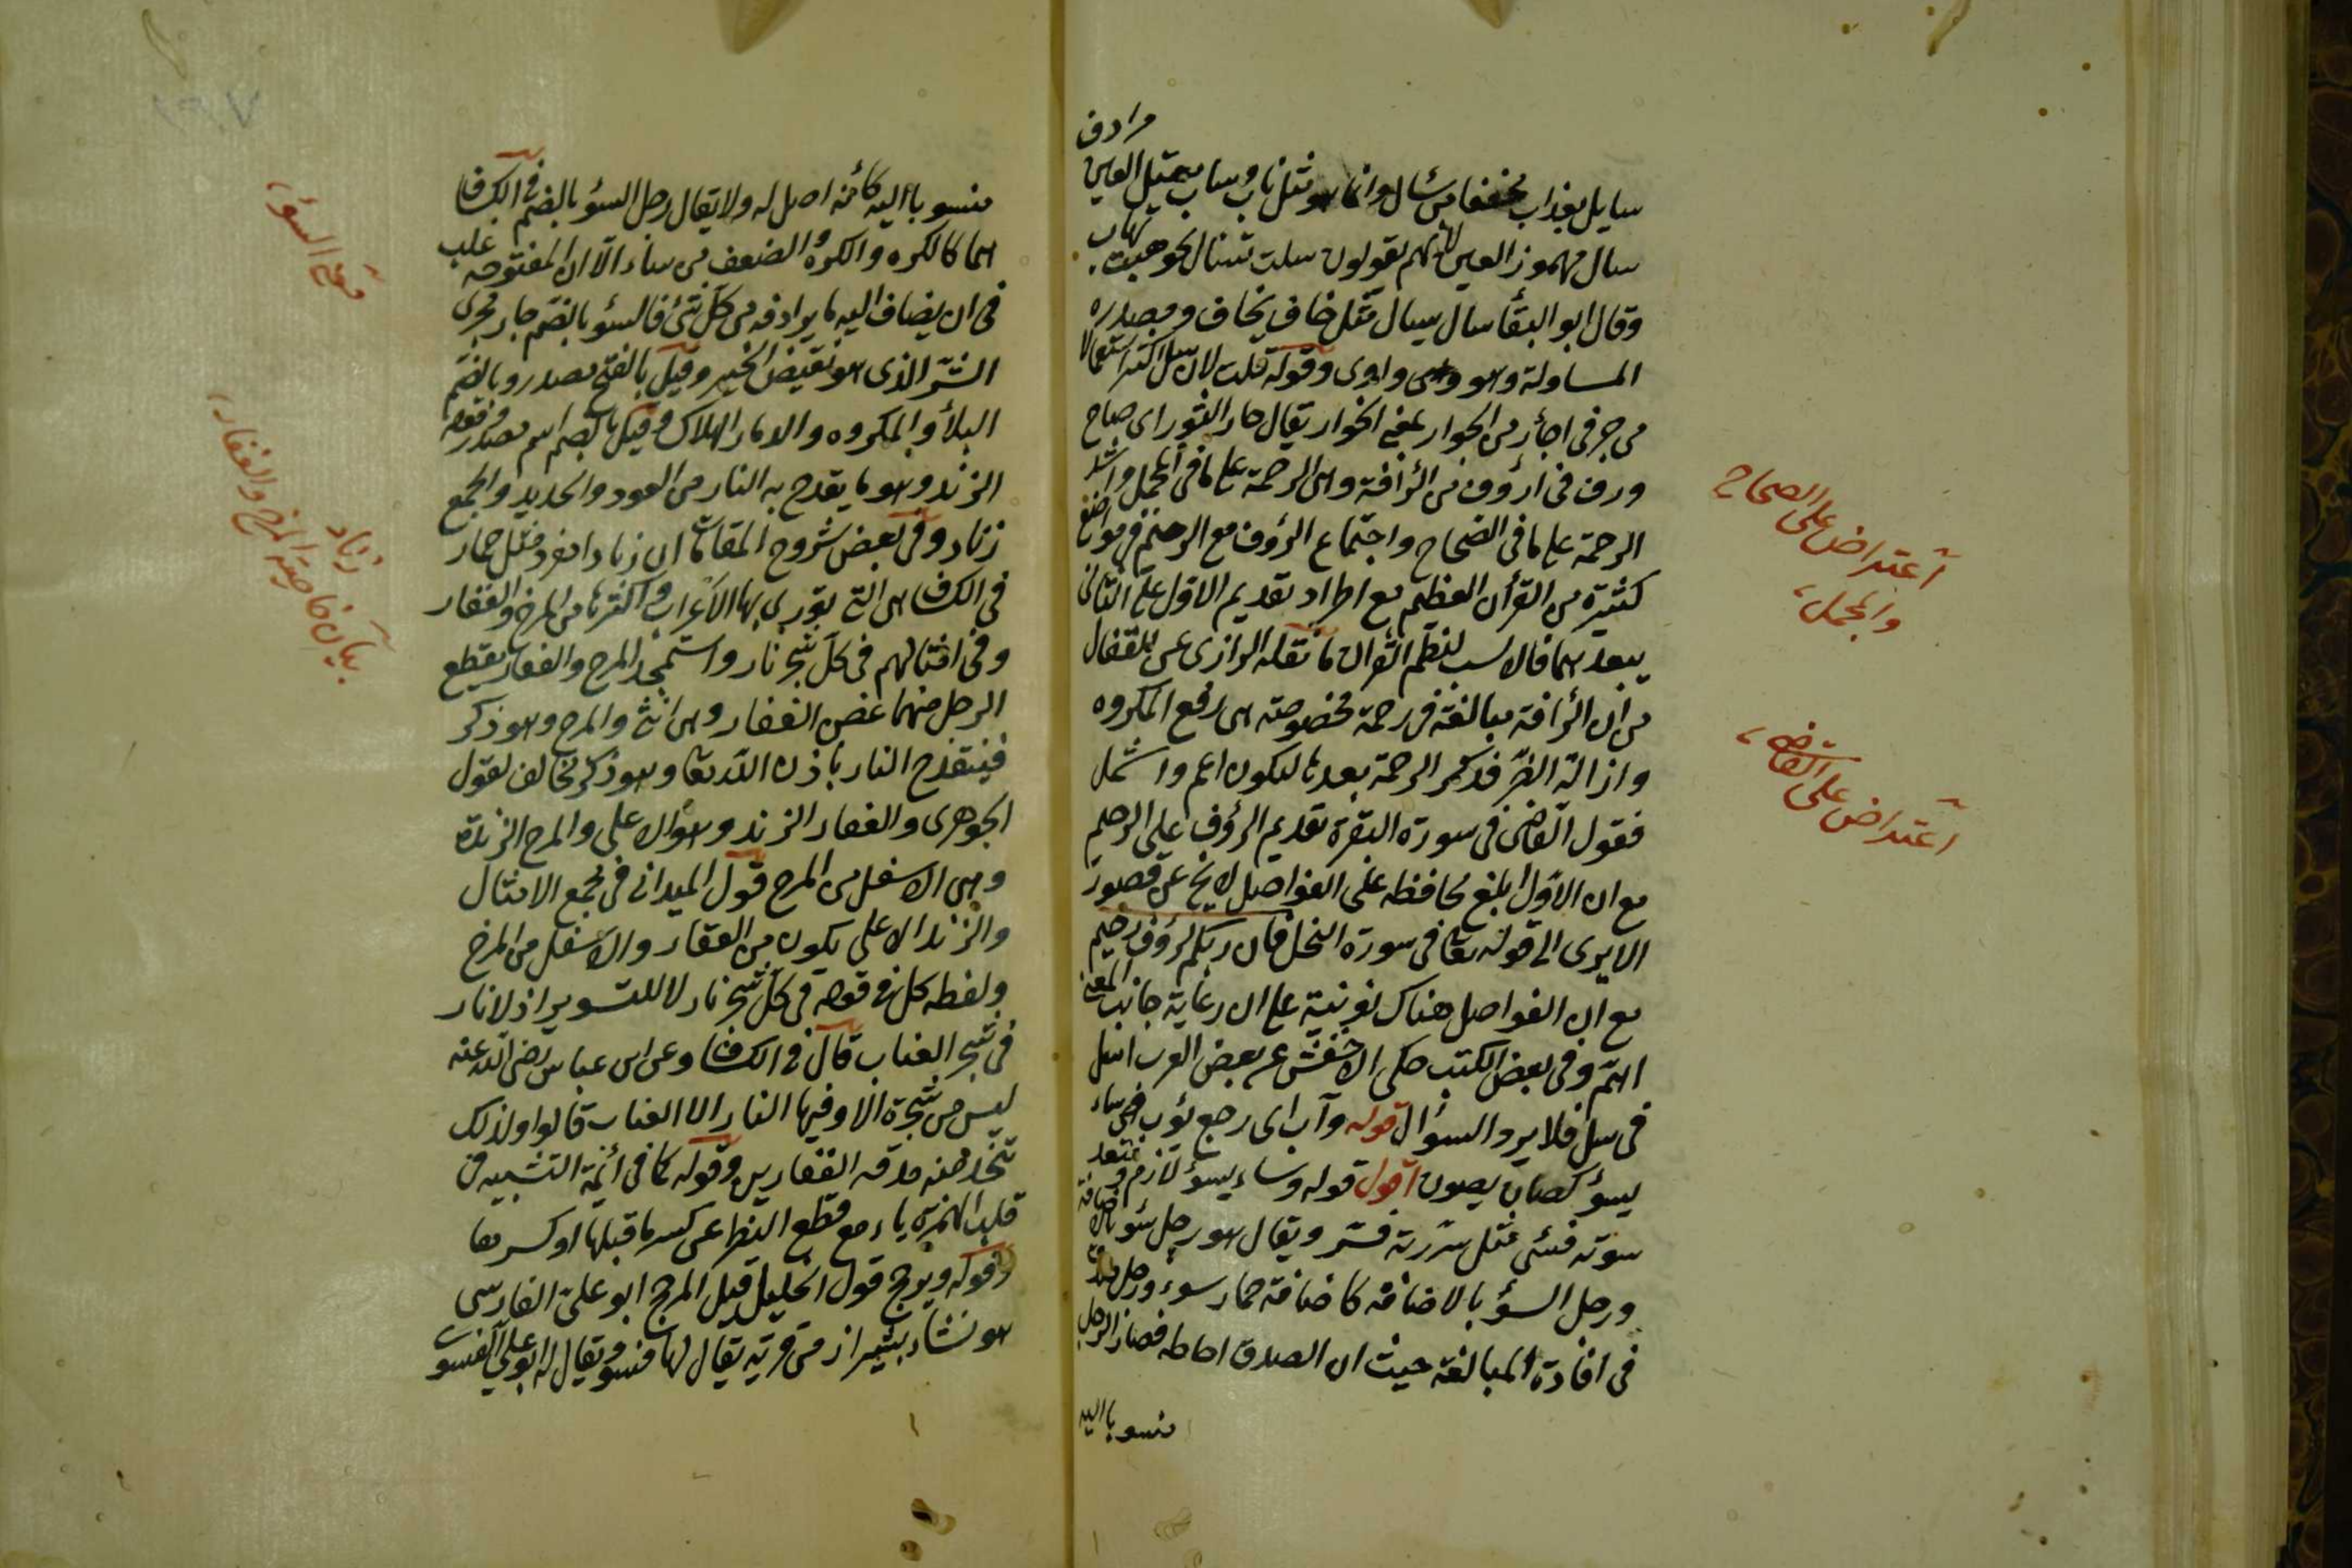 مرادف
سايل بعذاب مخففا من سأل وانما هو مثل ناب وساب بمعتل العين
سال مهموز العين لانهم يقولون سلت تسال نحو هبت تهاب
وقال ابو البقا سال يسال مثل خاف يخاف ومصدره
المساولة وهو واوى وقوله قلت لان سل اكثر استعمالا
من جر فى اجأر من الجوار بمعنى الخوار يقال جار الثور اى صاح
ورف فى ارؤف من الرأفة وهى الرحمة على ما فى المجمل واشد
الرحمة على ما فى الصحاح واجتماع الرؤف مع الرحيم فى مواضع
كثيرة من القرأن العظيم مع اطراد تقديم الاول على الثانى
يبعدهما فالانسب لنظم القرأن ما نقله الرازى عن القفال
من ان الرأفة مبالغة فى رحمة مخصوصة هى رفع المكروه
وازالة الضر فذكر الرحمة بعدها ليكون اعم واشمل
فقول القاضى فى سورة البقرة تقديم الرؤف على الرحيم
مع ان الاول ابلغ محافظه على الفواصل لا يخ عن قصور
الا يرى الى قوله تعا فى سورة النحل فان ربكم لرؤف رحيم
مع ان الفواصل هناك نونية على ان رعاية جانب المعنى
اهم وفى بعض الكتب حكى الاخفش عن بعض العرب اسل
فى سل فلا يرد السؤال قوله وآب اى رجع يؤب وساء
يسؤ كصان يصون اقول قوله وساء يسؤ لازم ومتعد
سوته فسئ مثل سررته فسر ويقال هو رجل سوء بالاضافة
ورجل السؤ بالاضافة كاضافة حمار سوء ورجل صدق
فى افادة المبالغة حيث ان الصدق احاطه فصار الرجل
منسوبا اليه
اعتراض على الصحاح
والمجمل
اعتراض على القاضى
منسوبا اليه كانه اصل له ولا يقال رجل السؤ بالضم فى الكشاف
هما كالكره والكره والضعف من ساء الا ان المفتوحه غلب
فى ان يضاف اليه ما يرادفه من كل شئ فالسؤ بالضم جار مجرى
الشر الذى هو نقيض الخير وقيل بالفتح مصدر وبالضم
البلأ والمكروه والدمار الهلاك وقيل بالضم اسم مصدر وقوله
الزند وهو ما يقدح به النار من العود والحديد والجمع
زناد وفى بعض شروح المقامات ان زنادا مفرد مثل حمار
فى الكشاف هى التى تورى بها الاعراب واكثرها من المرخ والعفار
وفى امثالهم فى كل شجر نار واستمجد المرخ والعفار يقطع
الرجل منهما غصن العفار وهى انثى والمرخ وهو ذكر
فينقدح النار باذن الله تعا وهو ذكر مخالف لقول
الجوهرى والعفار الزند وهو الاعلى والمرخ الزندة
وهى الاسفل من المرخ قول الميدانى فى مجمع الامثال
والزند الاعلى يكون من العفار والاسفل من المرخ
ولفظه كل فى قوله فى كل شجر نار لا للتسوير اذ لا نار
فى شجر العناب قال فى الكشاف وعن ابن عباس رضى الله عنه
ليس من شجرة الا وفيها النار الا العناب قالوا ولذلك
تتخذ منه مدقه القصارين وقوله كما فى أئمة التشبيه فى
قلب الهمزة ياء مع قطع النظر عن كسر ما قبلها او كسرها
وقوله ويرجح قول الخليل قيل المرجح ابو على الفارسى
هو نشاء بشيراز من قرية يقال لها فسو ويقال له ابو على الفسو
معنى السؤ
زناد
بيان خاصة المرخ والعفار